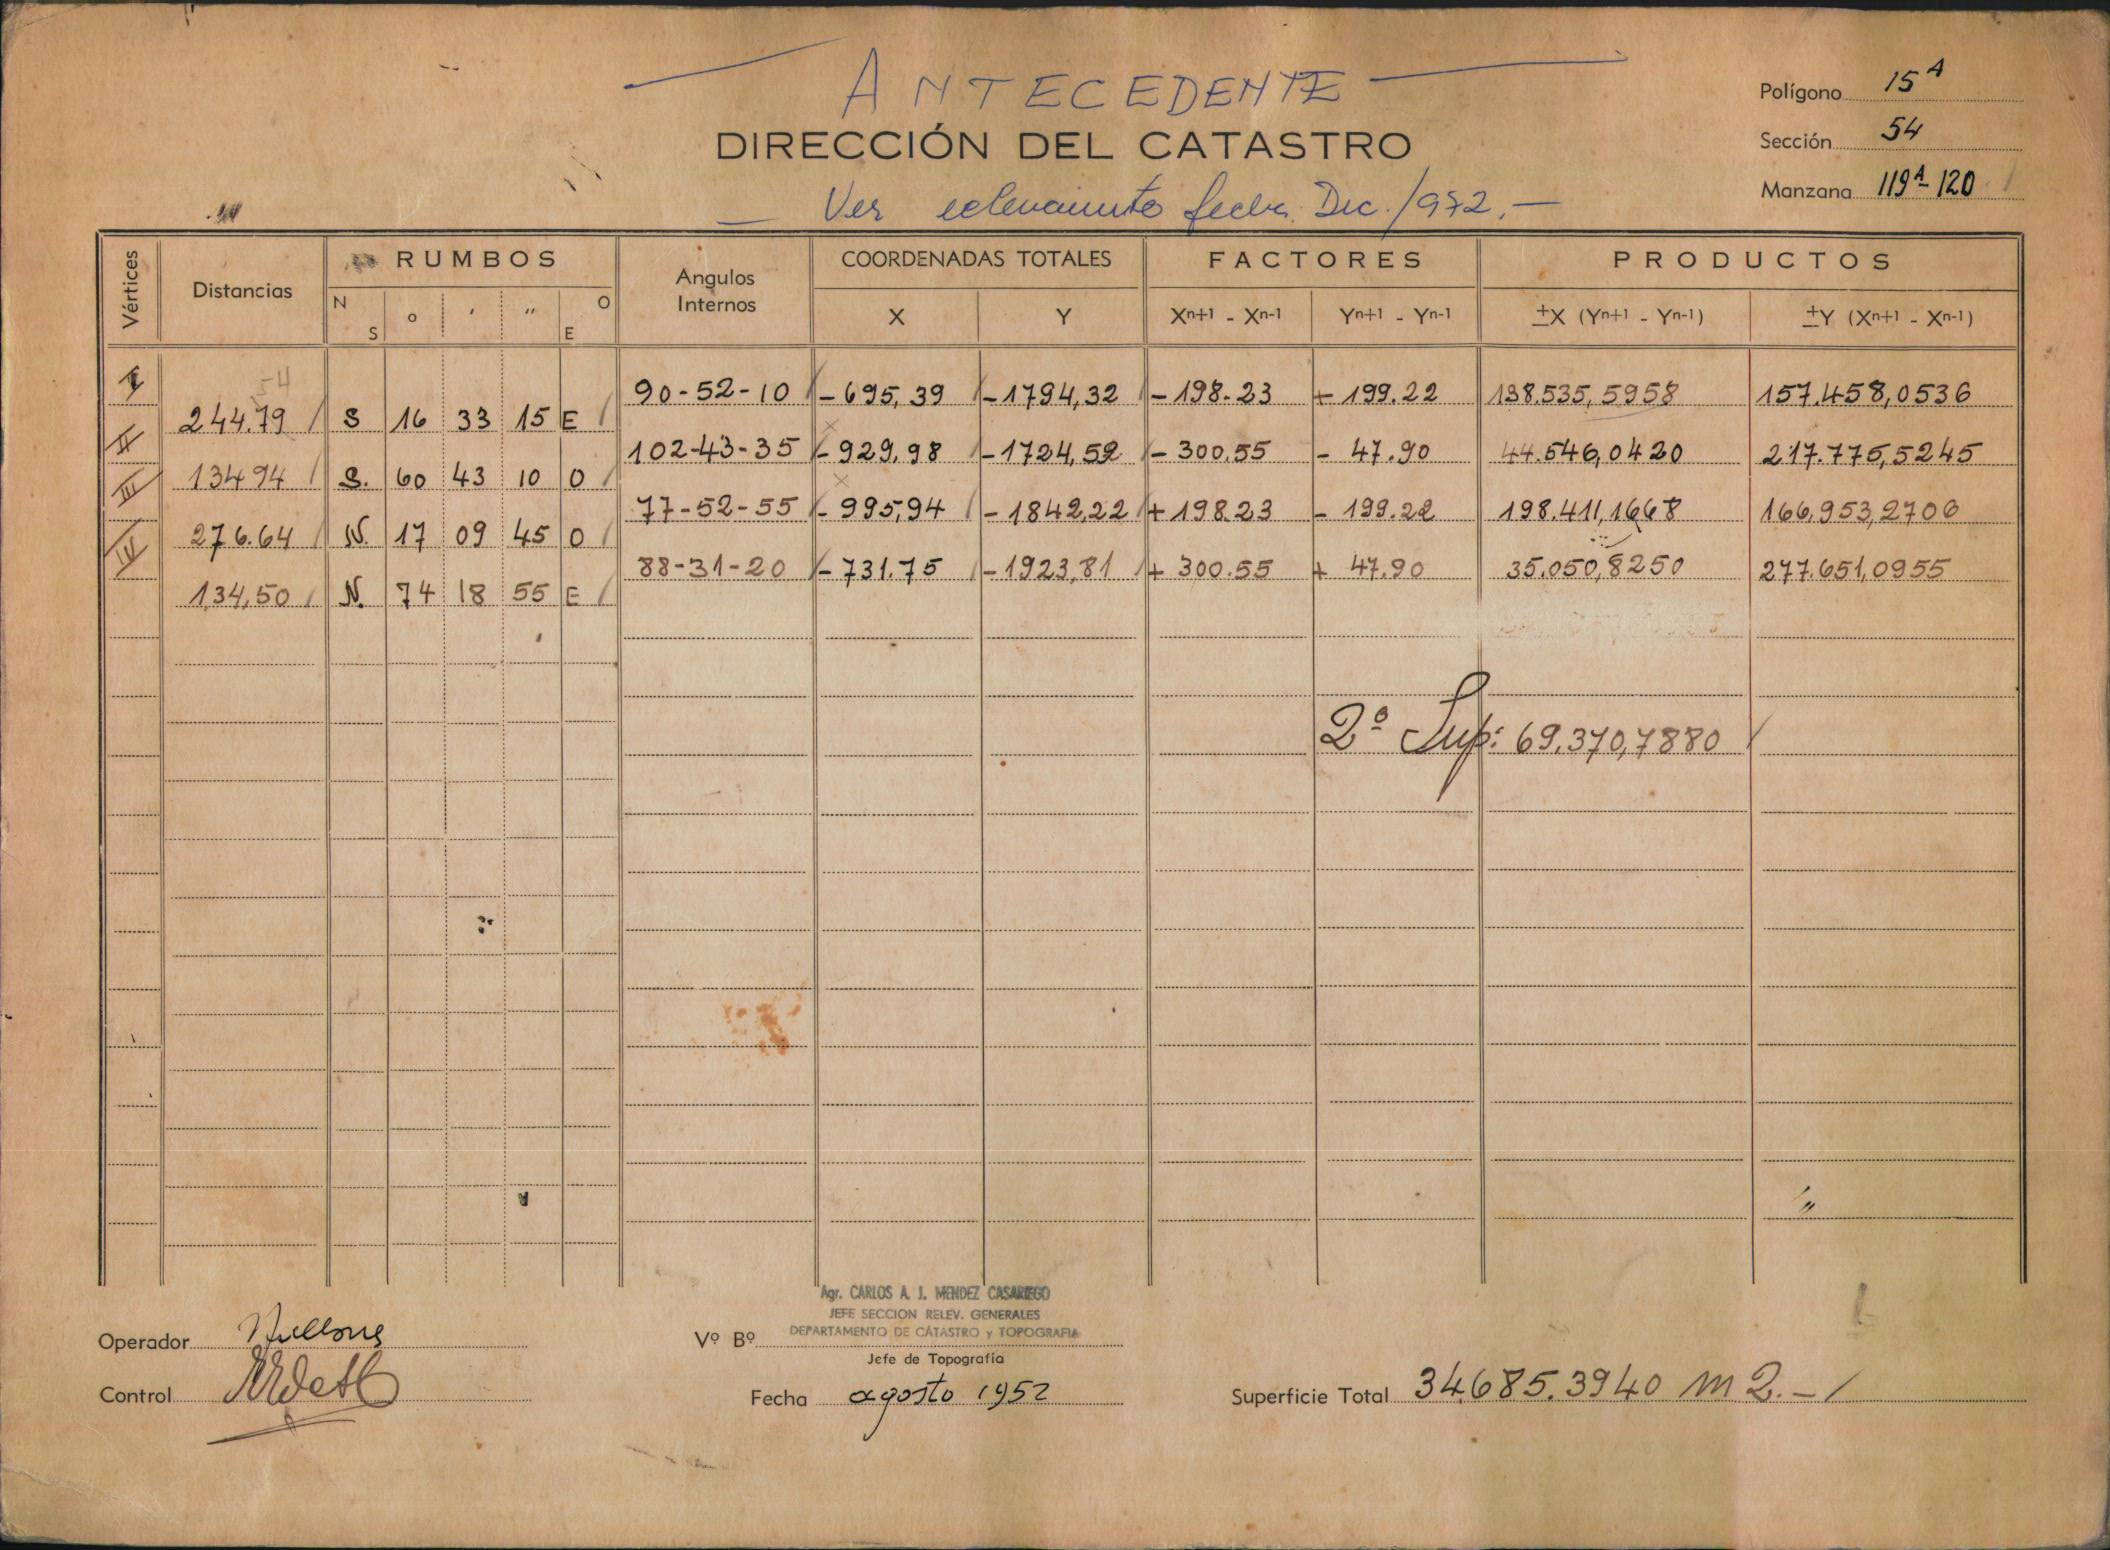 ANTECEDENTE
DIRECCIÓN DEL CATASTRO
Ver relevamiento fecha Dec./972.-
Polígono 15 A
Sección 54
Manzana 119A-120
Vértices Distancias RUMBOS Angulos Internos COORDENADAS TOTALES FACTORES PRODUCTOS
N S o ' " O E X Y Xn+1 - Xn-1 Yn+1 - Yn-1 ±X (Yn+1 - Yn-1) ±Y (Xn+1 - Xn-1)
I 90-52-10 -695,39 -1794,32 -198.23 +199.22 138.535,5958 157.458,0536
54
244.79 S 16 33 15 E
II 102-43-35 -929,98 -1724,52 -300.55 -47.90 44.546,0420 217.775,5245
134 94 S. 60 43 10 O
III 77-52-55 -995,94 -1842,22 +198.23 -199.22 198.411,1668 166,953,2706
276.64 N. 17 09 45 O
IV 88-31-20 -731.75 -1923,81 +300.55 +47.90 35.050,8250 277.651,0955
134,50 N. 74 18 55 E
2º Sup: 69.370,7880
Agr. CARLOS A. J. MENDEZ CASARIEGO
JEFE SECCION RELEV. GENERALES
DEPARTAMENTO DE CATASTRO y TOPOGRAFIA
Operador
Vº Bº
Jefe de Topografía
Control
Fecha agosto 1952
Superficie Total 34.685.3940 m 2.-